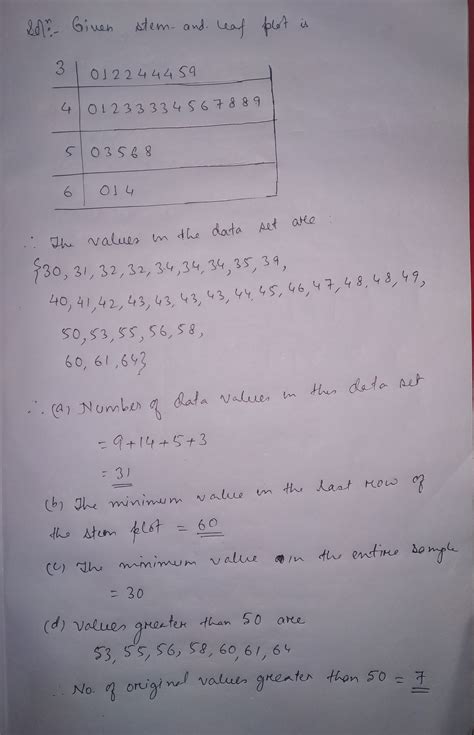 Solⁿ:- Given stem-and-leaf plot is
3 | 012244459
4 | 01233334567889
5 | 03568
6 | 014
∴ The values in the data set are
{30, 31, 32, 32, 34, 34, 34, 35, 39,
40, 41, 42, 43, 43, 43, 43, 44, 45, 46, 47, 48, 48, 49,
50, 53, 55, 56, 58,
60, 61, 64}
∴ (a) Number of data values in this data set
= 9+14+5+3
= 31
(b) The minimum value in the last row of
the stem plot = 60
(c) The minimum value in the entire sample
= 30
(d) Values greater than 50 are
53, 55, 56, 58, 60, 61, 64
∴ No. of original values greater than 50 = 7